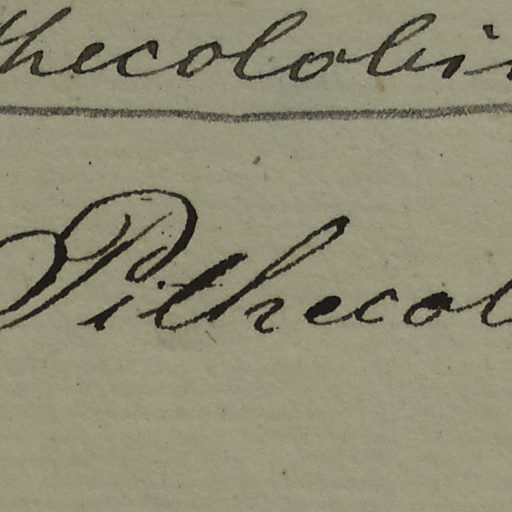 thecolobi
Pithecol